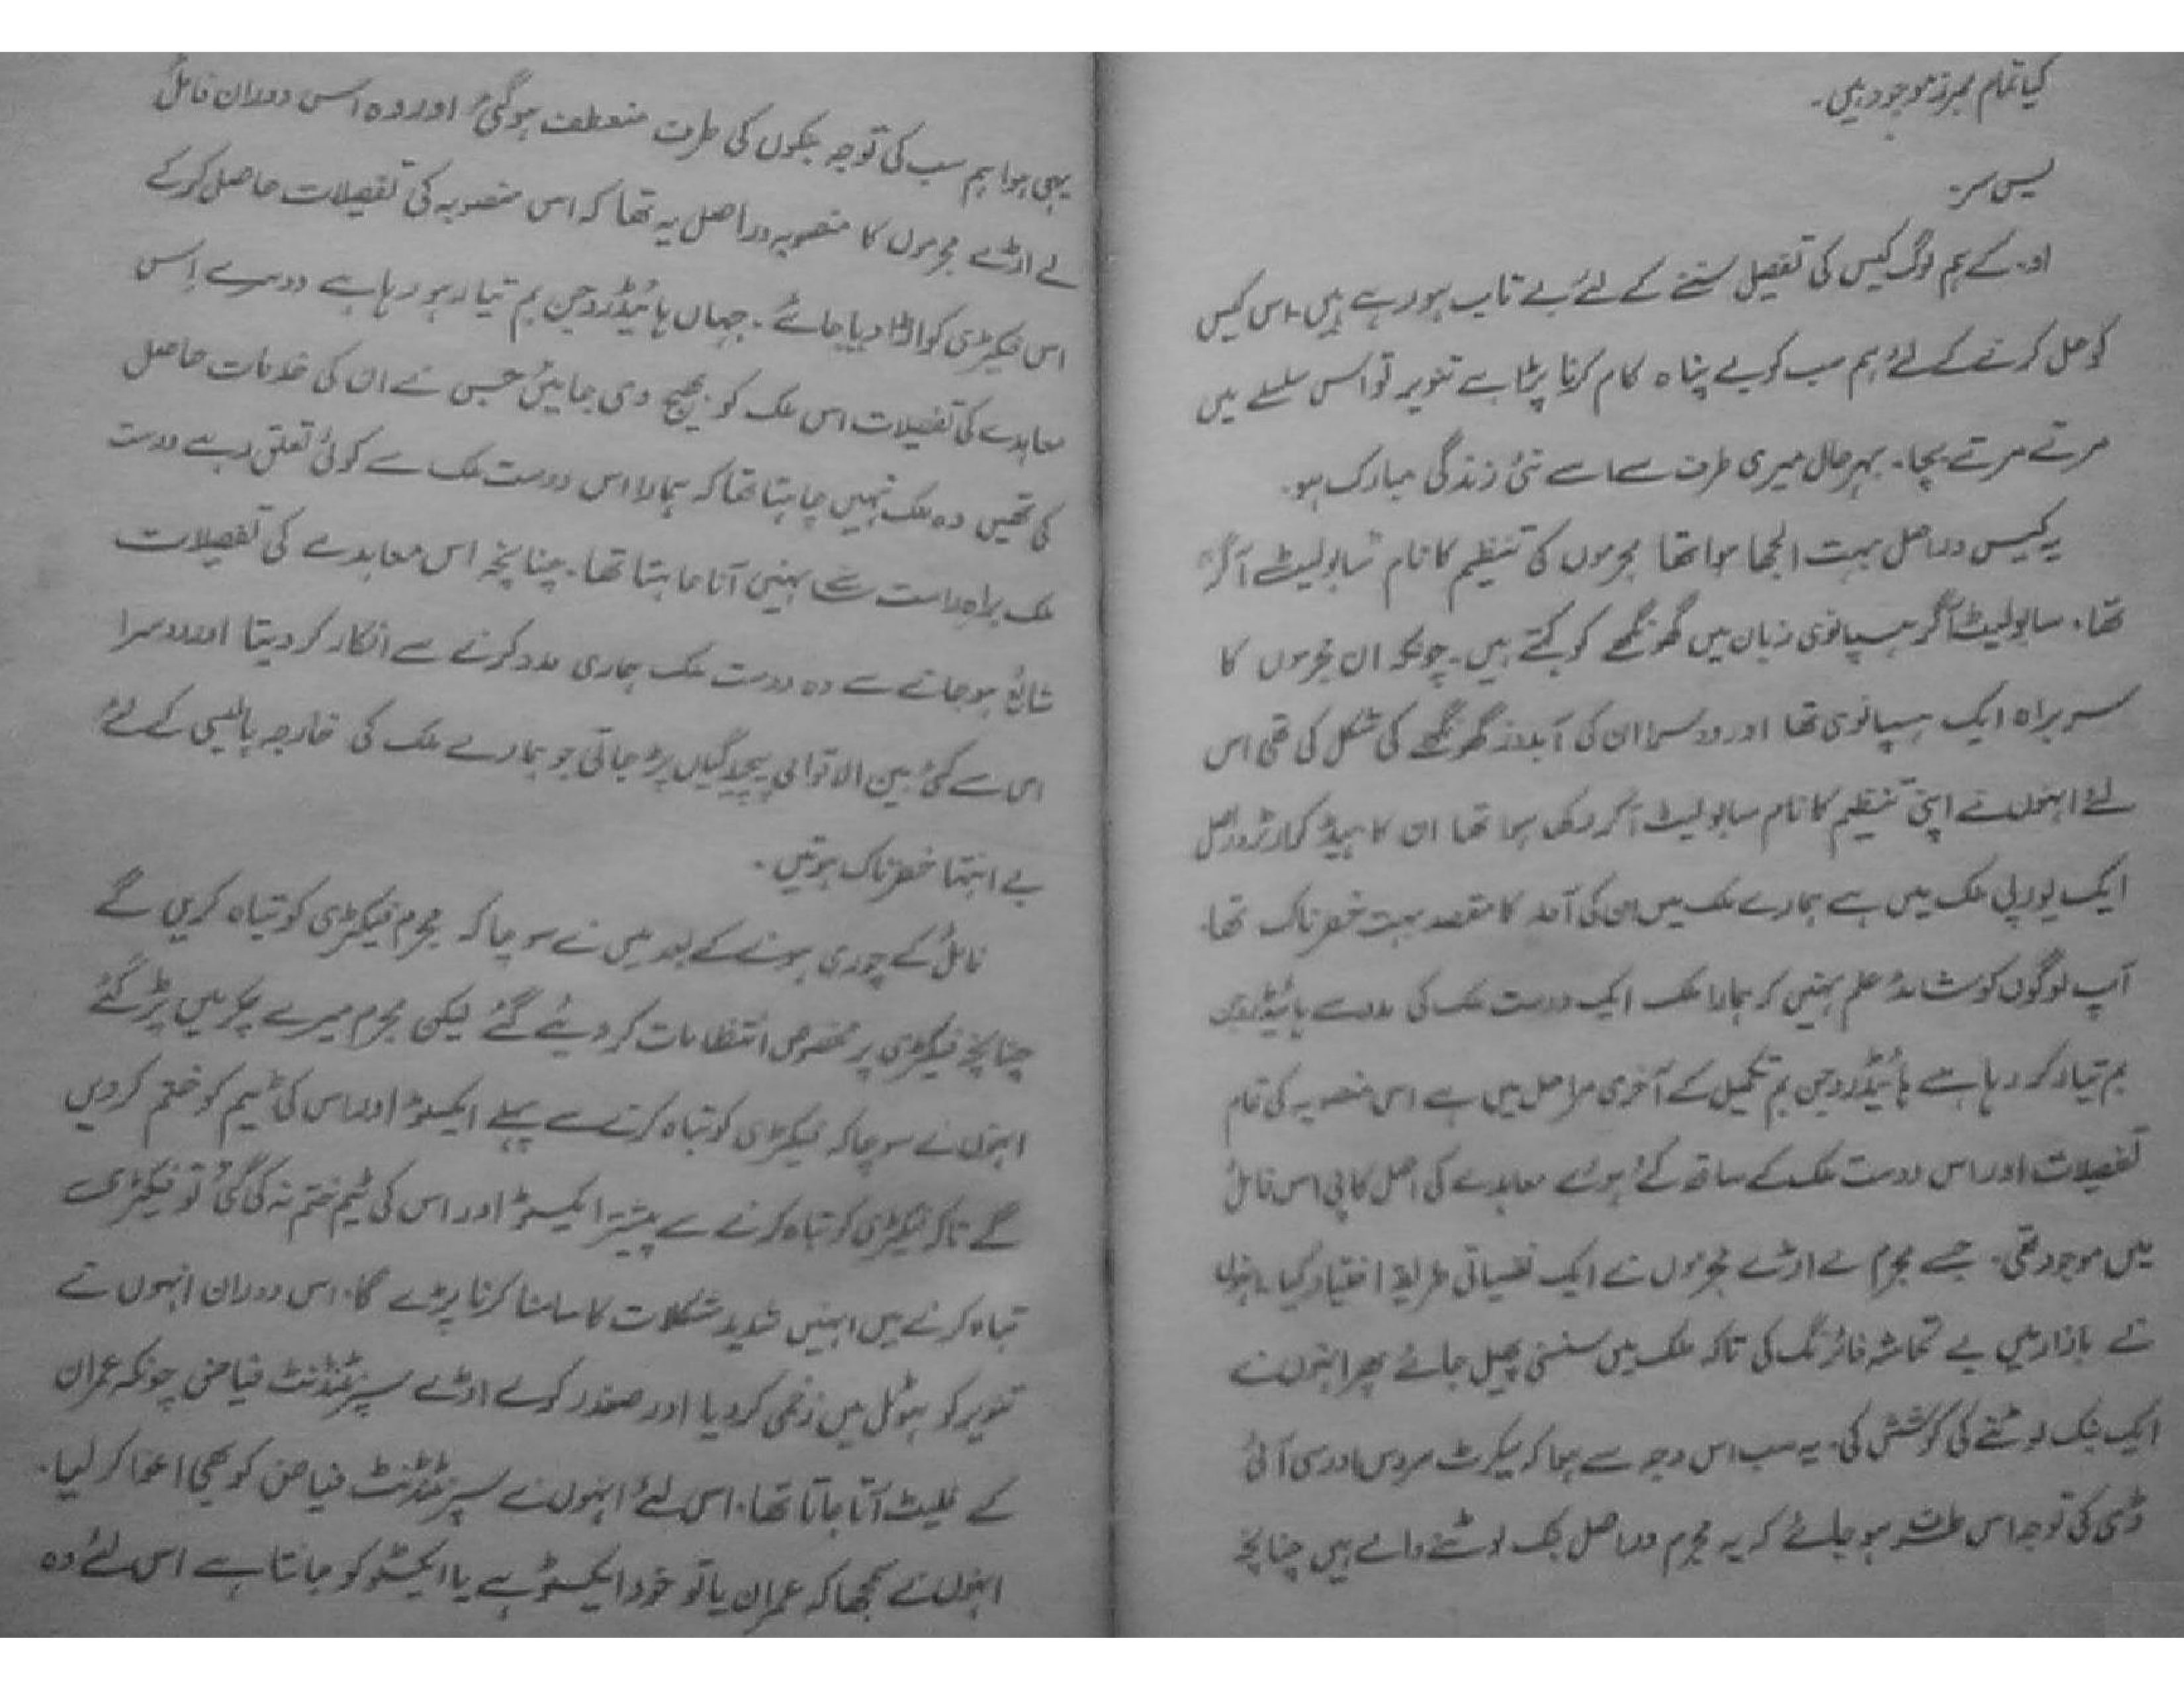 کیا تمام ممبرز موجود ہیں۔
یس سر۔
او۔ کے ہم لوگ کیس کی تفصیل سننے کے لئے بے تاب ہو رہے ہیں۔ اس کیس
کو حل کرنے کے لئے ہم سب کو بے پناہ کام کرنا پڑا ہے تنویر تو اس سلسلے میں
مرتے مرتے بچا۔ بہرحال میری طرف سے اسے نئی زندگی مبارک ہو۔
یہ کیس دراصل بہت الجھا ہوا تھا مجرموں کی تنظیم کا نام سابولیٹ آگر
تھا۔ سابولیٹ آگر ہسپانوی زبان میں گھونگھے کو کہتے ہیں۔ چونکہ ان مجرموں کا
سربراہ ایک ہسپانوی تھا اور دوسرا ان کی آبدوز گھونگھے کی شکل کی تھی اس
لئے انہوں نے اپنی تنظیم کا نام سابولیٹ آگر رکھا ہوا تھا ان کا ہیڈ کوارٹر دراصل
ایک یورپی ملک میں ہے ہمارے ملک میں ان کی آمد کا مقصد بہت خطرناک تھا۔
آپ لوگوں کو شائد علم نہیں کہ ہمارا ملک ایک دوست ملک کی مدد سے ہائیڈروجن
بم تیار کر رہا ہے ہائیڈروجن بم تکمیل کے آخری مراحل میں ہے اس منصوبہ کی تمام
تفصیلات اور اس دوست ملک کے ساتھ کئے ہوئے معاہدے کی اصل کاپی اس فائل
میں موجود تھی۔ جسے مجرم لے اڑے مجرموں نے ایک نفسیاتی طریقہ اختیار کیا۔ انہوں
نے بازار میں بے تحاشہ فائرنگ کی تاکہ ملک میں سنسنی پھیل جائے پھر انہوں نے
ایک بنک لوٹنے کی کوشش کی۔ یہ سب اس وجہ سے ہوا کہ سیکرٹ سروس اور سی آئی
ڈی کی توجہ اس طرف ہو جائے کہ یہ مجرم دراصل بنک لوٹنے والے ہیں چنانچہ
یہی ہوا ہم سب کی توجہ بنکوں کی طرف منعطف ہو گئی اور وہ اس دوران فائل
لے اڑے مجرموں کا منصوبہ دراصل یہ تھا کہ اس منصوبہ کی تفصیلات حاصل کر کے
اس فیکٹری کو اڑا دیا جائے۔ جہاں ہائیڈروجن بم تیار ہو رہا ہے دوسرے اس
معاہدے کی تفصیلات اس ملک کو بھیج دی جائیں جس نے ان کی خدمات حاصل
کی تھیں وہ ملک نہیں چاہتا تھا کہ ہمارا اس دوست ملک سے کوئی تعلق رہے دوست
ملک براہ راست سامنے نہیں آنا چاہتا تھا۔ چنانچہ اس معاہدے کی تفصیلات
شائع ہو جانے سے وہ دوست ملک ہماری مدد کرنے سے انکار کر دیتا اور دوسرا
اس سے کئی بین الاقوامی پیچیدگیاں پڑ جاتی جو ہمارے ملک کی خارجہ پالیسی کے لئے
بے انتہا خطرناک ہوتیں۔
فائل کے چوری ہونے کے بعد میں نے سوچا کہ مجرم فیکٹری کو تباہ کریں گے
چنانچہ فیکٹری پر مخصوص انتظامات کر دیئے گئے لیکن مجرم میرے چکر میں پڑ گئے
انہوں نے سوچا کہ فیکٹری کو تباہ کرنے سے پہلے ایکسٹو اور اس کی ٹیم کو ختم کر دیں
گے تاکہ فیکٹری کو تباہ کرنے سے پیشتر ایکسٹو اور اس کی ٹیم ختم نہ کی گئی تو فیکٹری
تباہ کرنے میں انہیں شدید مشکلات کا سامنا کرنا پڑے گا۔ اس دوران انہوں نے
تنویر کو ہوٹل میں زخمی کر دیا اور صفدر کو لے اڑے سپرنٹنڈنٹ فیاض چونکہ عمران
کے فلیٹ آتا جاتا تھا۔ اس لئے انہوں نے سپرنٹنڈنٹ فیاض کو بھی اغوا کر لیا۔
انہوں نے سمجھا کہ عمران یا تو خود ایکسٹو ہے یا ایکسٹو کو جانتا ہے اس لئے وہ